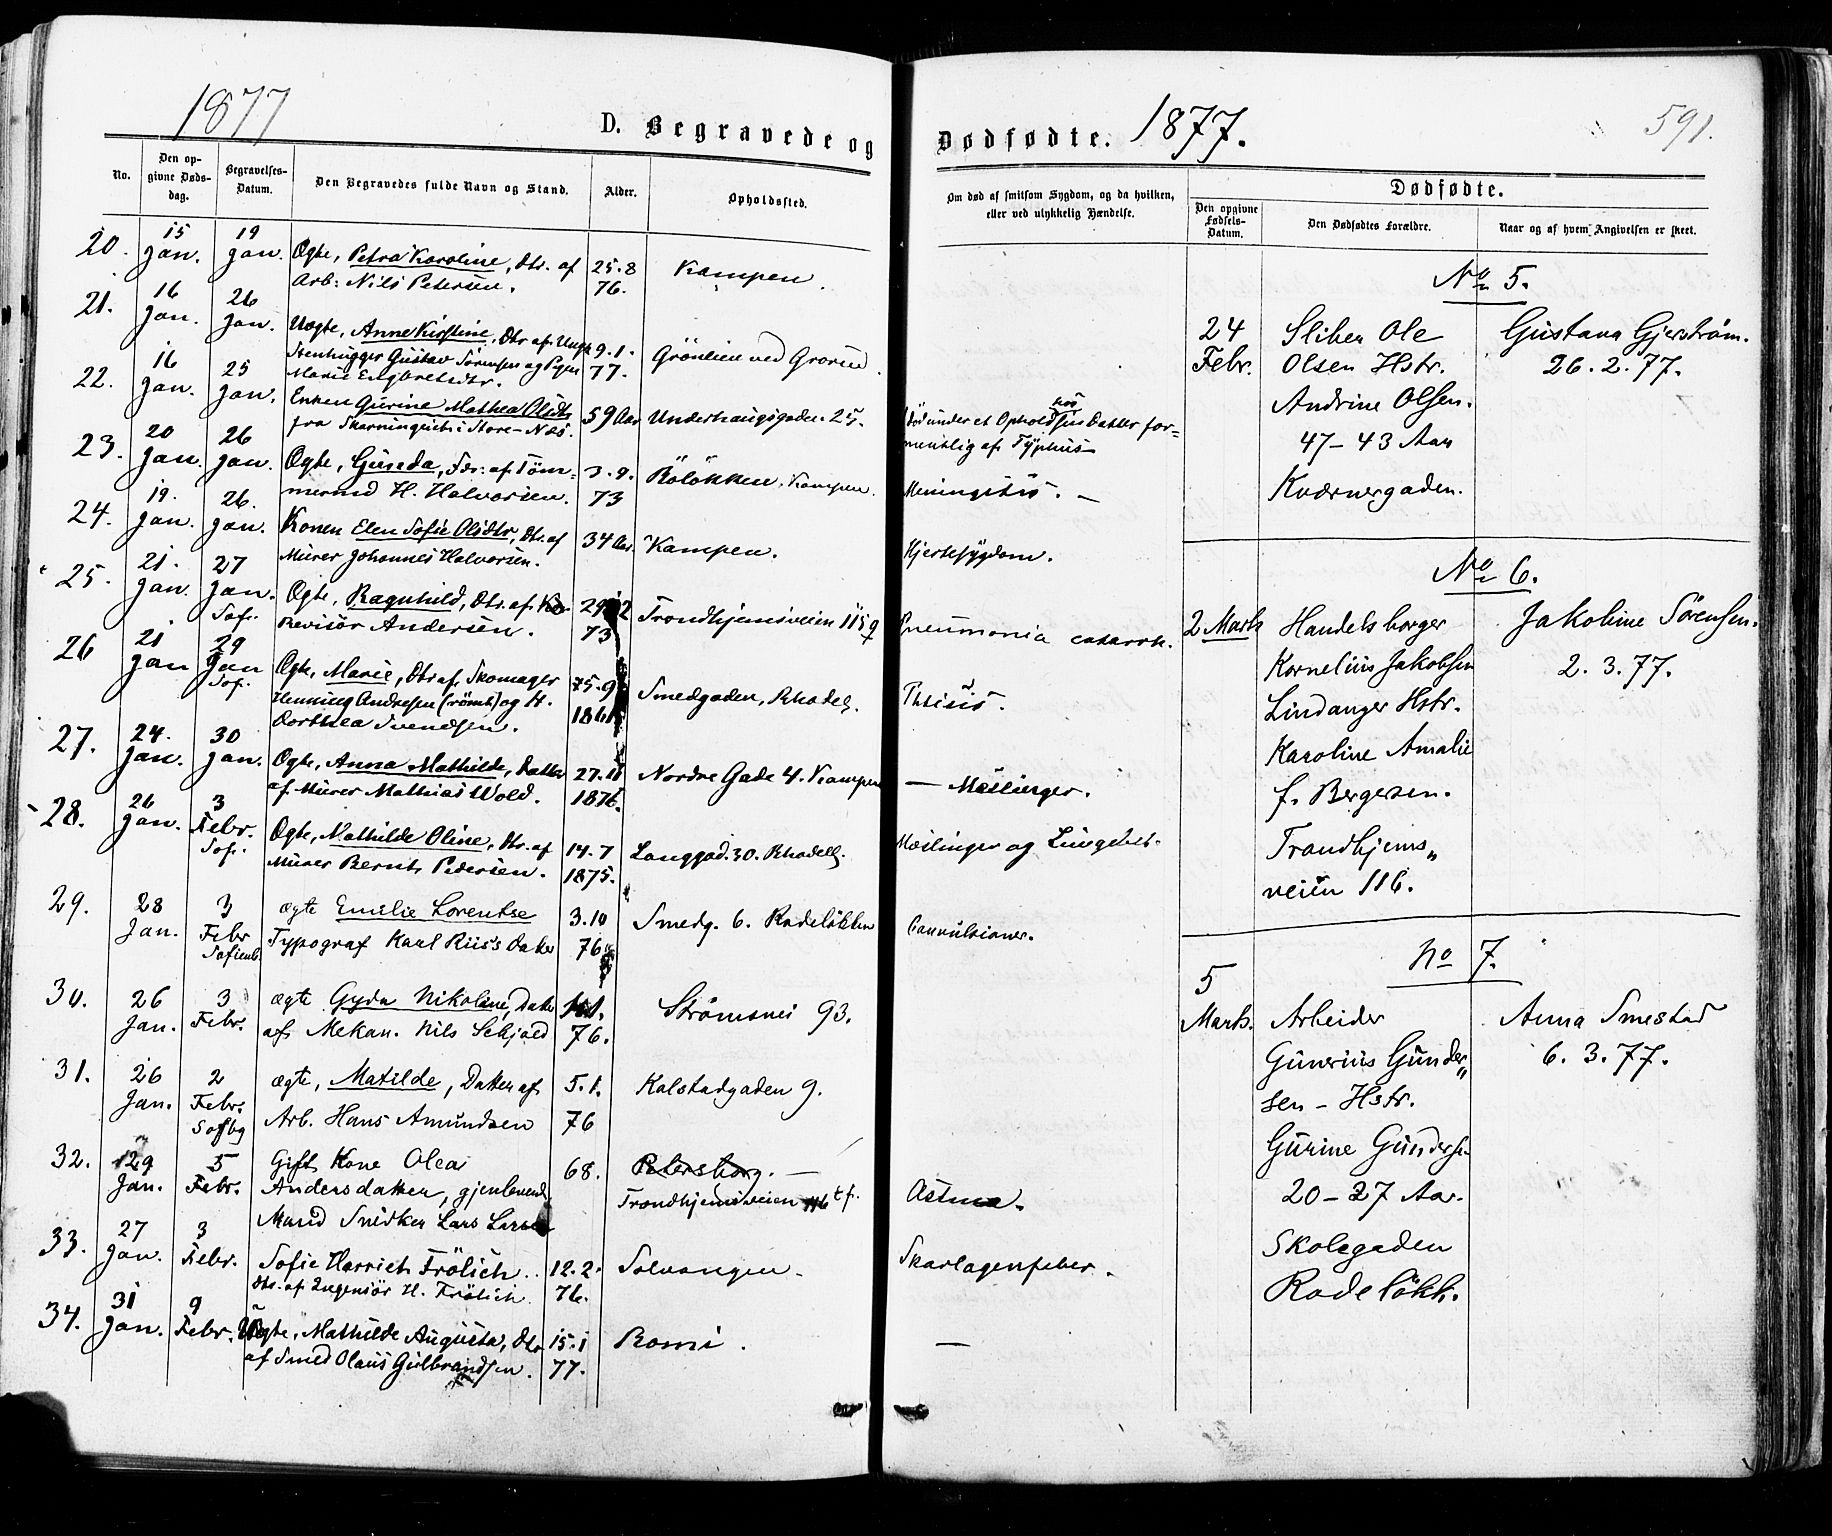 1877
D. Begravede og
No.
Den op-
givne Døds-
dag.
Begravelses-
Datum.
Den Begravedes fulde Navn og Stand.
Alder.
Opholdssted.
20. 15 Jan. 19 Jan. Ægte, Petra Karoline, Dtr. af 25.8 Kampen.
Arb: Nils Petersen. 76.
21. 16 Jan. 26 Jan. Uægte, Anne Kirstine, Dtr. af Ungk 9.1. Grönlien ved Grorud.
Stenhugger Gustav Sörensen og Pigen 77.
Marie Engbretsdtr.
22. 16 Jan. 25 Jan. Enken Gurine Mathea Olsdtr 59 Aar Underhaugsgaden 25.
fra i Store-Næs.
23. 20 Jan. 26 Jan. Ægte, Gunda, af Töm- 3.9. Rölökken, Kampen.
mermd H. Halvorsen. 73
24. 19. Jan. 26. Jan. Konen Elen Sofie Olsdtr, Dtr. af 34 Aar Kampen.
Murer Johannes Halvorsen.
25. 21. Jan. 27 Jan. Sof. Ægte, Ragnhild, Dtr. af 29.12 Trondhjemsveien 115
Revisör Andersen. 73
26 21 Jan 29 Jan Sof. Ægte, Marie, Dtr. af Skomager 75.9 Smedgaden, Rhodel.
Henning Andresen (römt) og H. 1861
Dorthea Svendsen.
27. 24. Jan. 30 Jan. Ægte, Anna Mathilde, Datter 27.11 Nordre Gade 4. Kampen
af Murer Mathias Wold. 1876.
28. 26 Jan. 3 Febr. Sof. Ægte, Mathilde Oline, Dtr. af 14.7 Langgad. 30. Rhodell.
Murer Bernt Pedersen. 1875.
29. 28 Jan. 3 Febr Sofienb. ægte Emilie Lorentse 3.10 Smedg. 6. Rodelökken
Typograf Karl Riis's Datter 76
30. 26 Jan. 3 Febr. ægte Gyda Nikoline, Datter Strømsvei 93.
af Mekan. Nils 76.
31. 26 Jan. 2 Febr. Sofbg ægte, Matilde, Datter af 5.1. Kalstadgaden 9.
Arb. Hans Amundsen 76
32. 29 Jan. 5 Febr. Gift Kone Olea 68. Petersborg. —
Andersdatter, gjenlevende Trondhjemsveien 116 t f.
Mand Snedker Lars Larsen
33. 27 Jan. 3 Febr. Sofie Harriet Frölich. 12.2. Solvangen
Dtr. af Ingeniör H. Frölich. 76.
34. 31 Jan. 9 Febr. Uægte, Mathilde Augusta, Dtr 15.1 Romi.
af Smed Olaus Gulbrandsen. 77.
Dødfødte. 1877.
591.
Om død af smitsom Sygdom, og da hvilken,
eller ved ulykkelig Hændelse.
Dødfødte.
Den opgivne
Fødsels-
Datum.
Den Dødfødtes Forældre.
Naar og af hvem Angivelsen er skeet.
Död under et Ophold hos sin Datter for=
mentlig af Typhus
Meningitis. —
Hjertesygdom.
Pneumonia catarrh.
Phtisis.
— Mæslinger.
Mæslinger og
Convulsioner.
Astma.
Skarlagensfeber.
—
No 5.
24 Febr. Sliber Ole Gustava Gjerström.
Olsen Hstr. 26.2.77.
Andrine Olsen.
47-43 Aar
Kværnergaden.
No 6.
2 Marts Handelsborger Jakobine Sörensen.
Kornelius Jakobsen 2.3.77.
Lindanger Hstr.
Karoline Amalie
f. Bergesen.
Trondhjems„
veien 116.
No 7.
5 Marts. Arbeider Anna Smestad
Gunerius Gunder„ 6.3.77.
sen - Hstr.
Gurine Gunders.
20-27 Aar.
Skolegaden
Rodelökk.